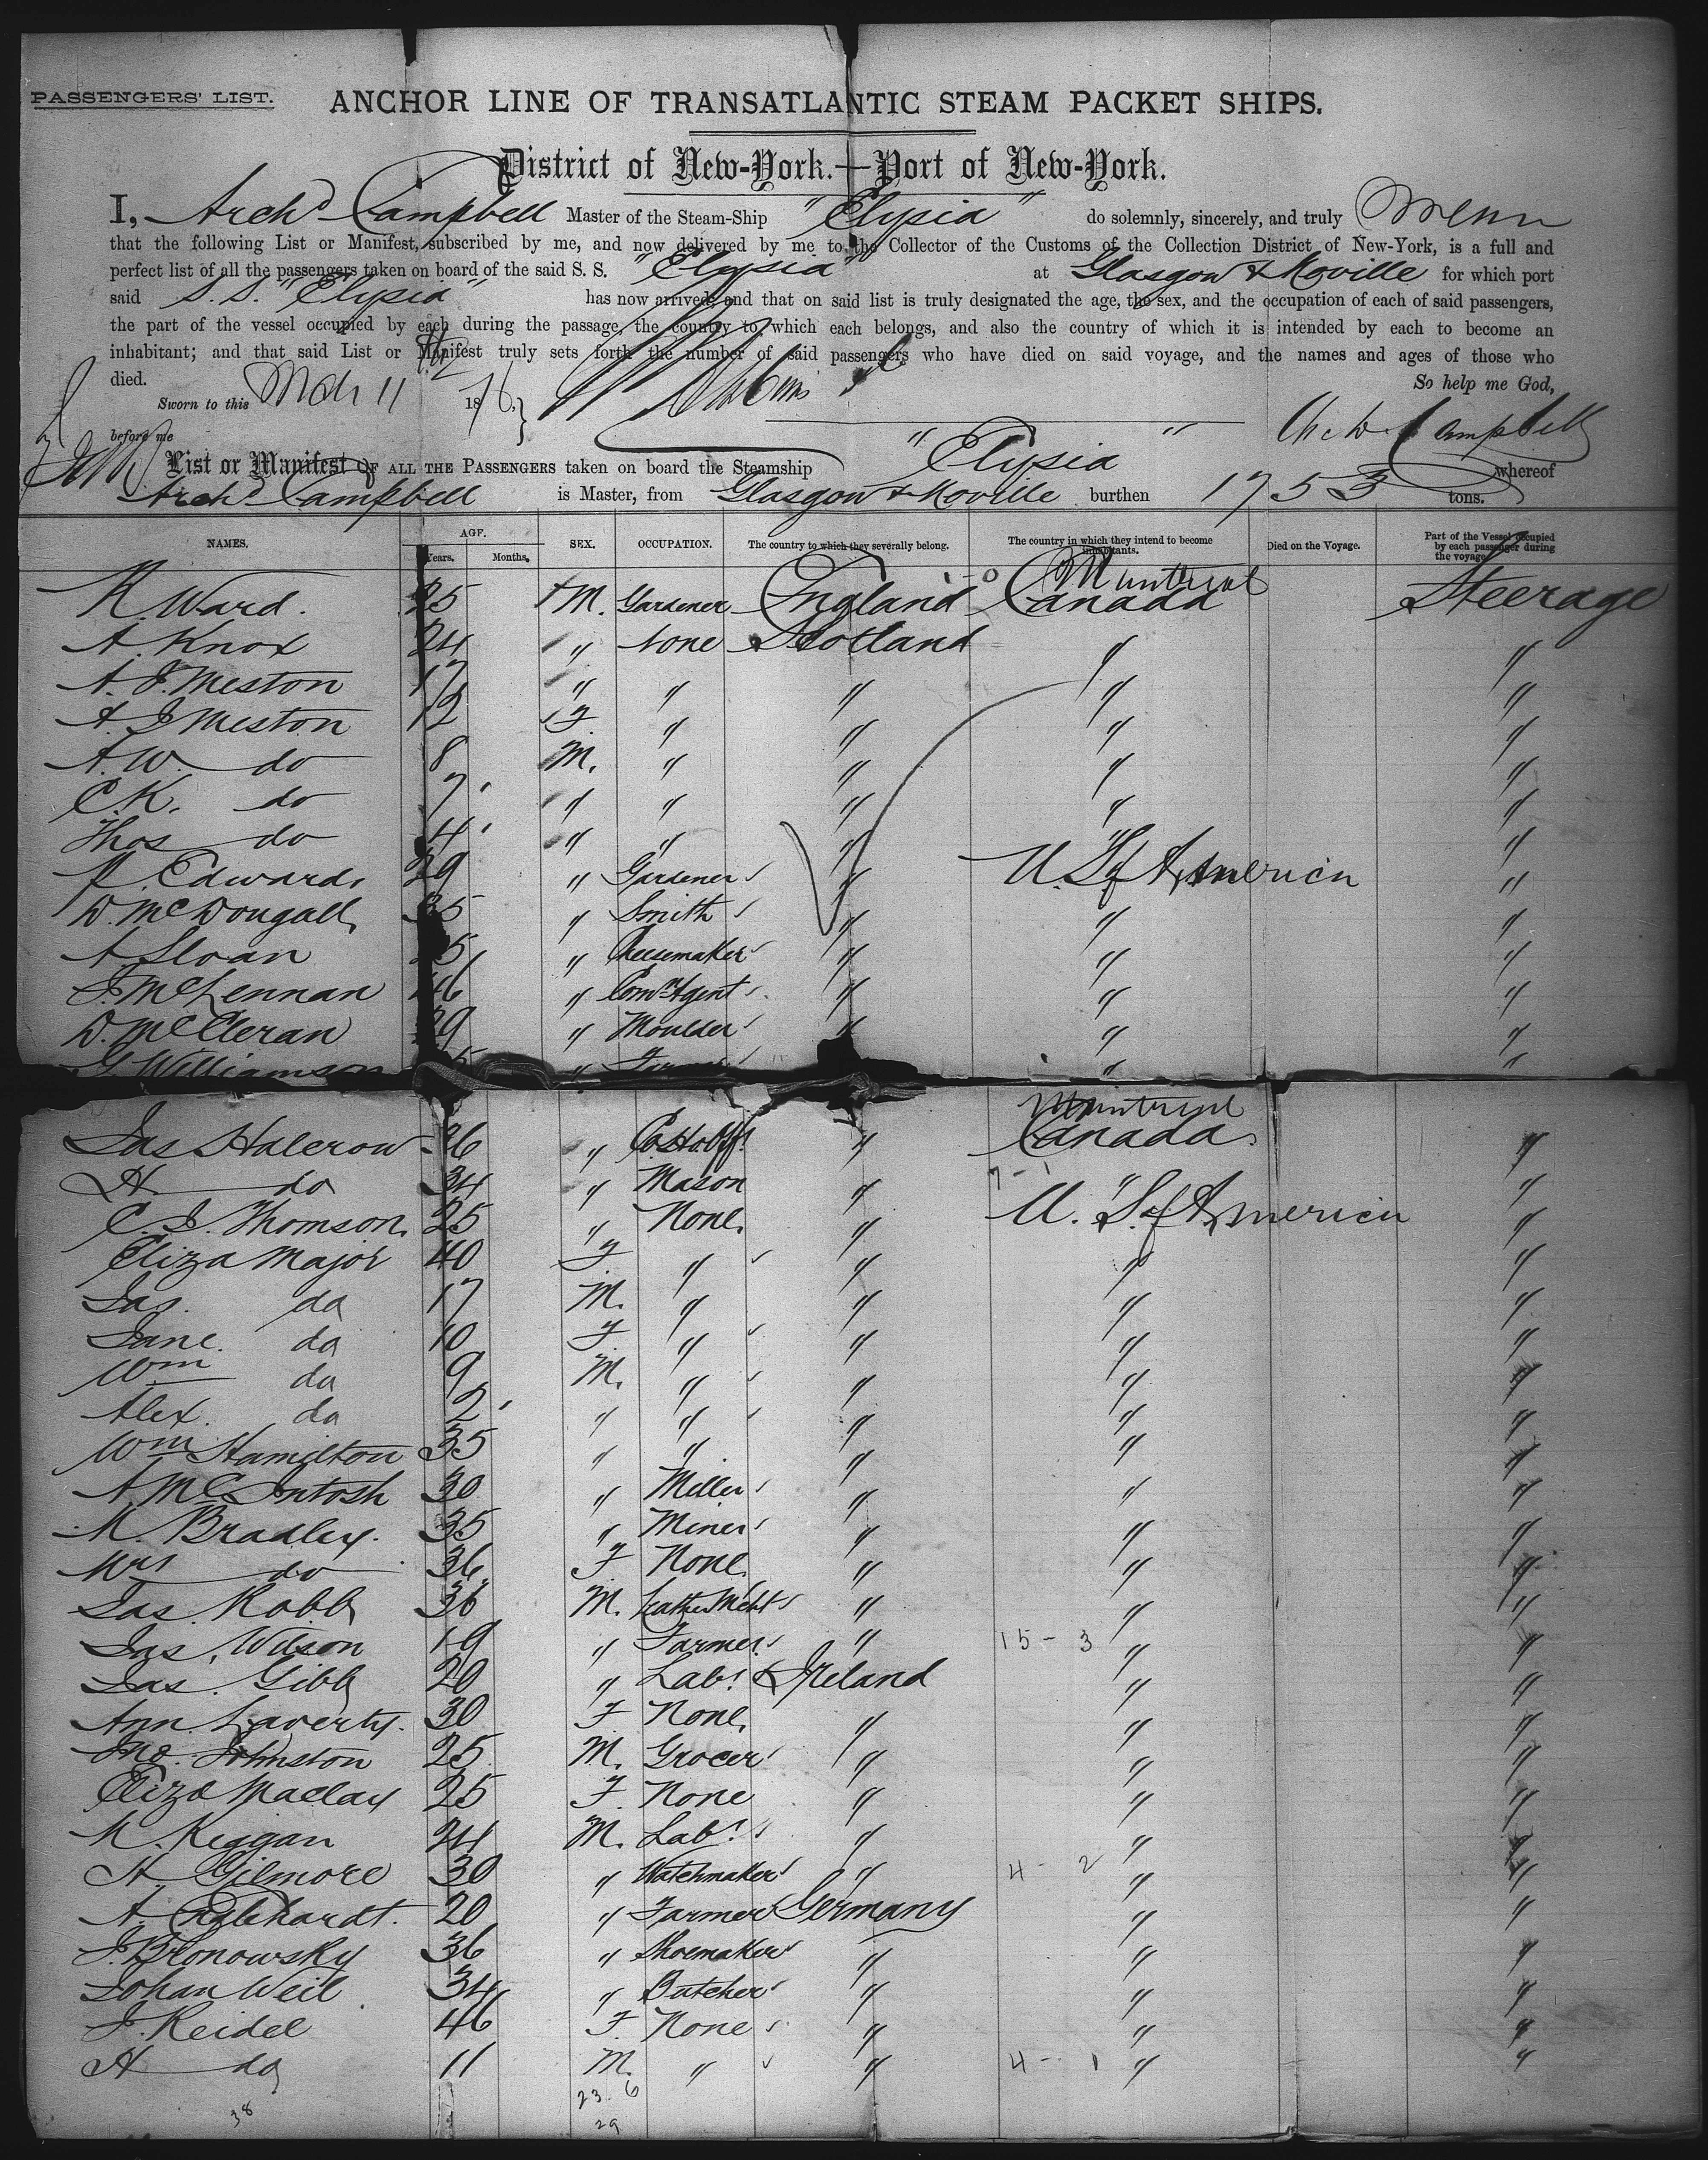 PASSENGERS' LIST.
ANCHOR LINE OF TRANSATLANTIC STEAM PACKET SHIPS.
District of New-York.—Port of New-York.
I, Archd Campbell Master of the Steam-Ship "Elysia" do solemnly, sincerely, and truly
that the following List or Manifest, subscribed by me, and now delivered by me to the Collector of the Customs of the Collection District of New-York, is a full and
perfect list of all the passengers taken on board of the said S. S. "Elysia" at Glasgow & Moville for which port
said S.S. "Elysia" has now arrived; and that on said list is truly designated the age, the sex, and the occupation of each of said passengers,
the part of the vessel occupied by each during the passage, the country to which each belongs, and also the country of which it is intended by each to become an
inhabitant; and that said List or Manifest truly sets forth the number of said passengers who have died on said voyage, and the names and ages of those who
died. So help me God,
Sworn to this Mch 11 1876,
before me Archd Campbell
List or Manifest OF ALL THE PASSENGERS taken on board the Steamship "Elysia" whereof
Archd Campbell is Master, from Glasgow & Moville burthen 1753 tons.
NAMES. AGE. Years. Months. SEX. OCCUPATION. The country to which they severally belong. The country in which they intend to become inhabitants. Died on the Voyage. Part of the Vessel occupied by each passenger during the voyage.
Montreal
R. Ward. 25 M. Gardener England 1-0 Canada Steerage
A. Knox 24 " None Scotland " "
A. J. Meston 17 " " " " "
A. J Meston 12 F. " " " "
A. W. do 8 M. " " " "
C. K. do 7 " " " " "
Thos do 4 " " " " "
Edwards 29 " Gardener " U. S. of America "
D. McDougall 35 " Smith " " "
A Sloan 5 " Cheesemaker " " "
J. McLennan 46 " Comn Agent " " "
D. McCleran 29 " Moulder " " "
G Williamson 5 " Farmer "
Montreal
Jas Halcrow 36 " " Canada "
H do 34 " Mason " " "
7-1
C. J. Thomson 25 " None " U. S. of America "
Eliza Major 40 F " " " "
Jas. do 17 M. " " " "
Jane. do 10 F " " " "
Wm do 9 M. " " " "
Alex. do 2 " " " " "
Wm Hamilton 35 " " " " "
A McIntosh 30 " Miller " " "
M Bradley. 35 " Miner " " "
Mrs do 36 F None " " "
Jas. Robb 36 M. Leather Mcht " " "
Jas. Wilson 19 " Farmer " 15-3 " "
Jas. Gibb 20 " Labr Ireland " "
Ann Laverty. 30 F None " " "
Jno. Johnston 25 M. Grocer " " "
Eliza Maclay 25 F. None " " "
M. Keggan 24 M. Labr " " "
H. Gilmore 30 " Watchmaker " 4-2 " "
A. Englehardt. 20 " Farmer Germany " "
J. Bronowsky 36 " Shoemaker " " "
Johan Weil 34 " Butcher " " "
J. Reidel 46 F. None " " "
H do 11 M. " " 4-1 " "
23. 6
38 29